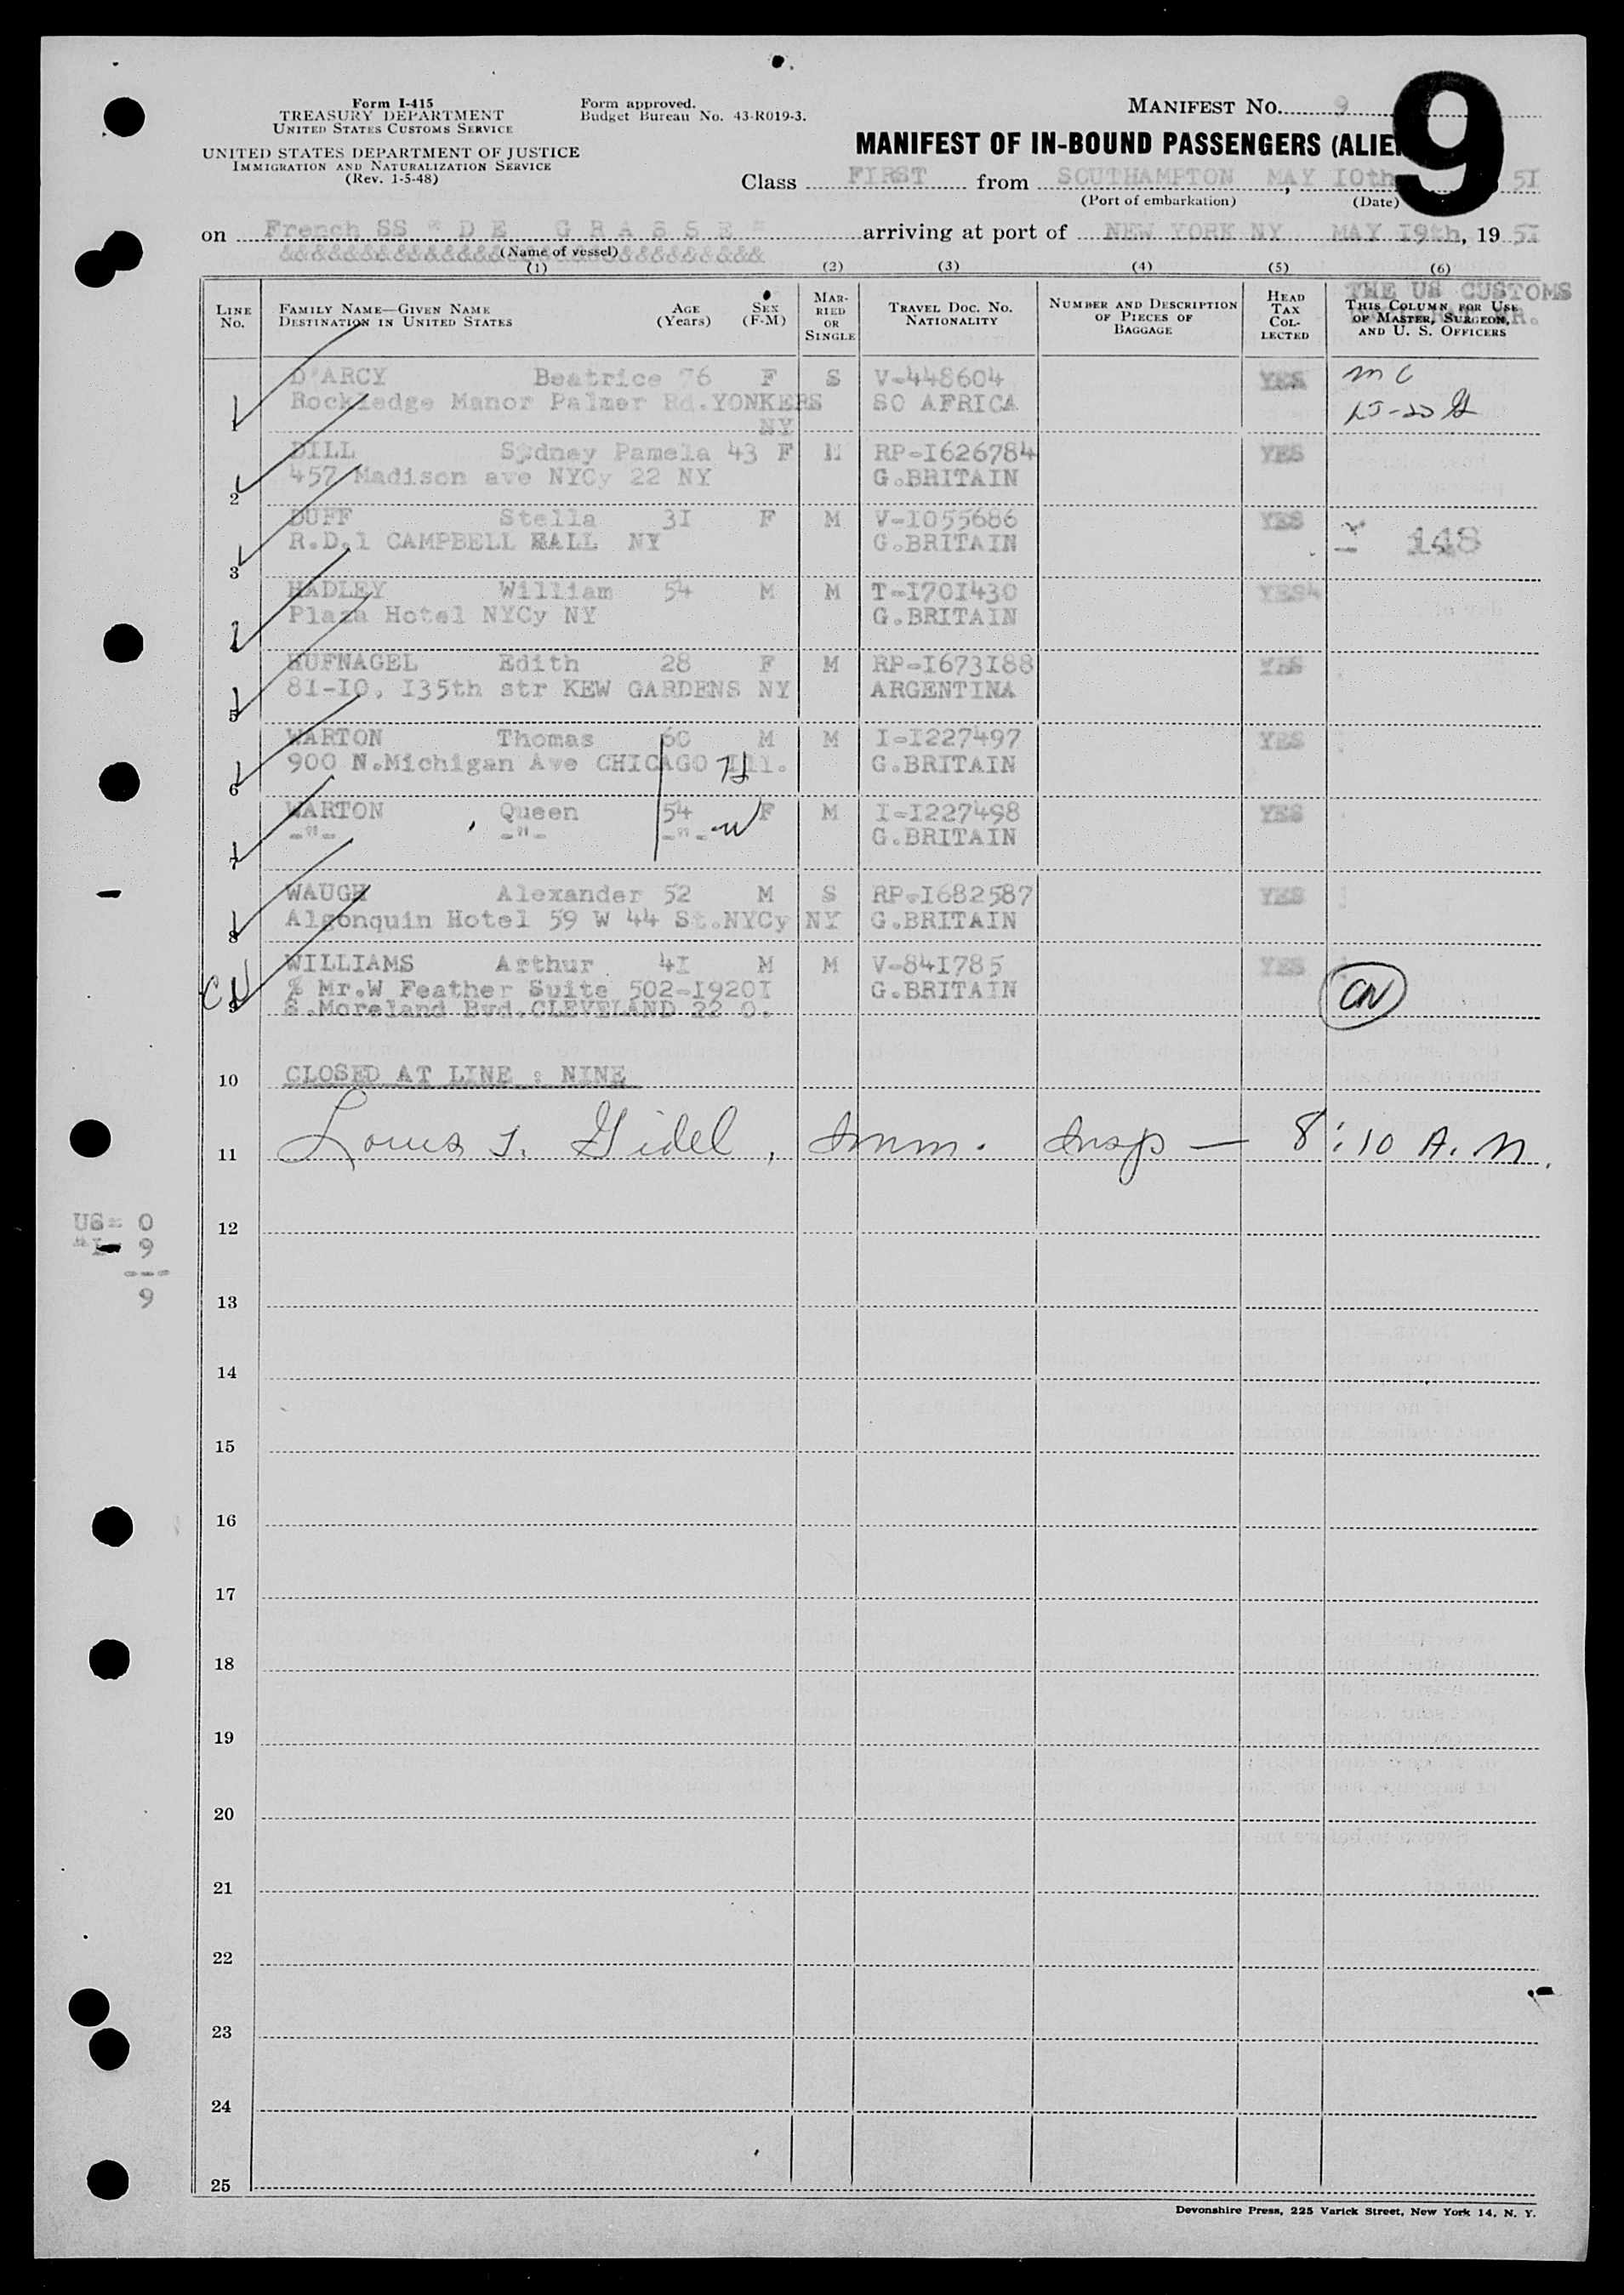 Form I-415
TREASURY DEPARTMENT
UNITED STATES CUSTOMS SERVICE
UNITED STATES DEPARTMENT OF JUSTICE
IMMIGRATION AND NATURALIZATION SERVICE
(Rev. 1-5-48)
Form approved.
Budget Bureau No. 43-R019-3.
MANIFEST NO. 9
9
MANIFEST OF IN-BOUND PASSENGERS (ALIE
Class FIRST from SOUTHAMPTON, MAY 10th 51
(Port of embarkation) (Date)
on French SS "DE GRASSE" arriving at port of NEW YORK NY MAY 19th, 1951
&&&&&&&&&&&&&& (Name of vessel) &&&&&&&&&&
(1) (2) (3) (4) (5) (6)
THE US CUSTOMS
LINE No. FAMILY NAME—GIVEN NAME DESTINATION IN UNITED STATES AGE (Years) SEX (F-M) MARRIED OR SINGLE TRAVEL DOC. NO. NATIONALITY NUMBER AND DESCRIPTION OF PIECES OF BAGGAGE HEAD TAX COLLECTED THIS COLUMN FOR USE OF MASTER, SURGEON, AND U. S. OFFICERS
1 D'ARCY Beatrice 76 F S V-448604 YES mc
Rockledge Manor Palmer Rd.YONKERS SO AFRICA
NY
DILL Sydney Pamela 43 F M RP-I626784 YES
2 457 Madison ave NYCy 22 NY G.BRITAIN
DUFF Stella 3I F M V-I055686 YES 148
3 R.D.1 CAMPBELL HALL NY G.BRITAIN
HADLEY William 54 M M T-I70I430 YES
Plaza Hotel NYCy NY G.BRITAIN
HUFNAGEL Edith 28 F M RP-I673I88 YES
5 8I-I0, I35th str KEW GARDENS NY ARGENTINA
WARTON Thomas 60 M M I-I227497 YES
6 900 N.Michigan Ave CHICAGO Ill. H G.BRITAIN
WARTON Queen 54 F M I-I227498 YES
7 -"- -"- -"- W G.BRITAIN
WAUGH Alexander 52 M S RP-I682587 YES
8 Algonquin Hotel 59 W 44 St.NYCy NY G.BRITAIN
WILLIAMS Arthur 4I M M V-84I785 YES
CN 9 % Mr.W Feather Suite 502-I920I G.BRITAIN CN
S.Moreland Bvd.CLEVELAND 22 O.
10 CLOSED AT LINE : NINE
11 Louis J. Gidel, Imm. Insp — 8:10 A.M.
US= 0
9
---
9
12
13
14
15
16
17
18
19
20
21
22
23
24
25
Devonshire Press, 225 Varick Street, New York 14, N. Y.